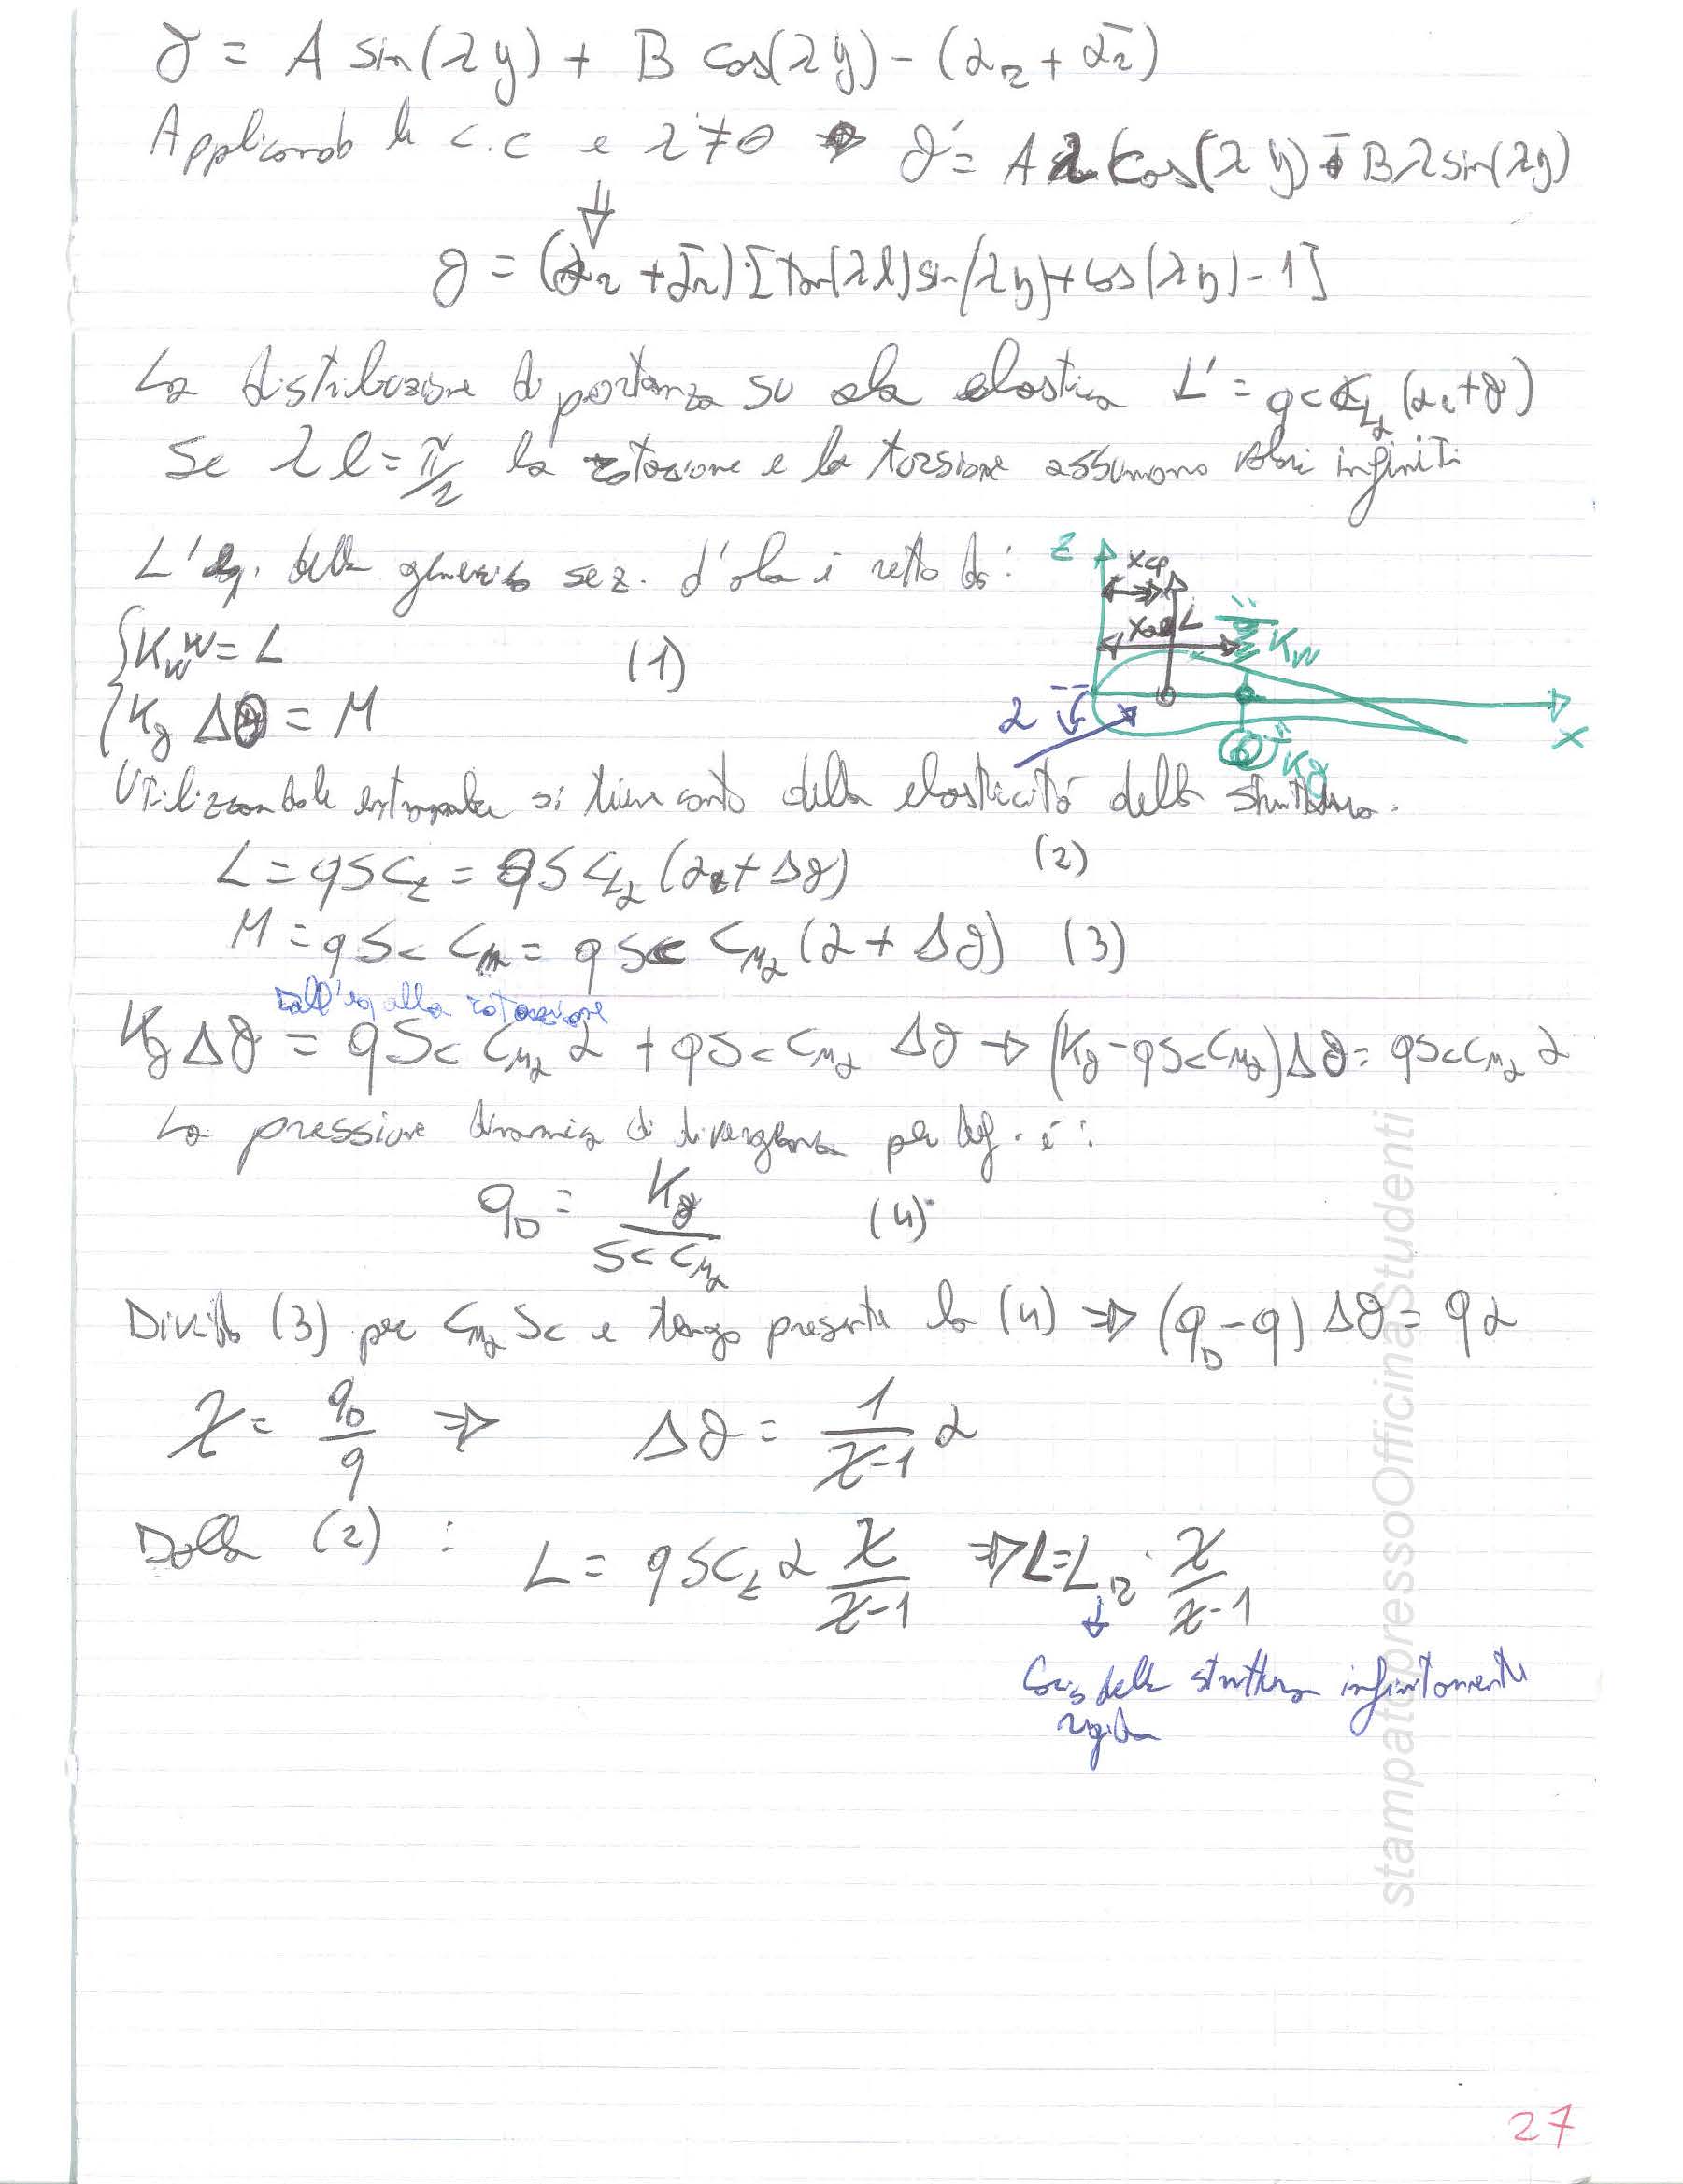 ϑ = A sin(λy) + B cos(λy) - (α_r + ᾱ_r)
Applicando le c.c e λ ≠ 0 ⇒ ϑ' = A λ cos(λy) - B λ sin(λy)
⇓
ϑ = (α_r + ᾱ_r)·[tan(λl) sin(λy) + cos(λy) - 1]
La distribuzione di portanza su ala elastica L' = q c C_Lα (α_r + ϑ)
Se λl = π/2 la rotazione e la torsione assumono valori infiniti
L'eq. della generica sez. d'ala è retto da:
z
x_CP
x_OE
L
K_W
α
V
K_ϑ
x
{ K_W W = L (1)
K_ϑ Δϑ = M
Utilizzando le si tiene conto della elasticità della struttura.
L = q S C_L = q S C_Lα (α + Δϑ) (2)
M = q S c C_m = q S c C_Mα (α + Δϑ) (3)
Dall'eq alla rotazione
K_ϑ Δϑ = q S c C_Mα α + q S c C_Mα Δϑ → (K_ϑ - q S c C_Mα) Δϑ = q S c C_Mα α
La pressione dinamica di divergenza per def. è:
q_D = K_ϑ / (S c C_Mα) (4)
Divido (3) per C_Mα S c e tengo presente la (4) ⇒ (q_D - q) Δϑ = q α
χ = q_D / q ⇒ Δϑ = 1 / (χ-1) α
Dalla (2) : L = q S C_L α χ / (χ-1) ⇒ L = L_r · χ / (χ-1)
↓
Caso della struttura infinitamente
rigida
stampatopressoOfficinaStudenti
27